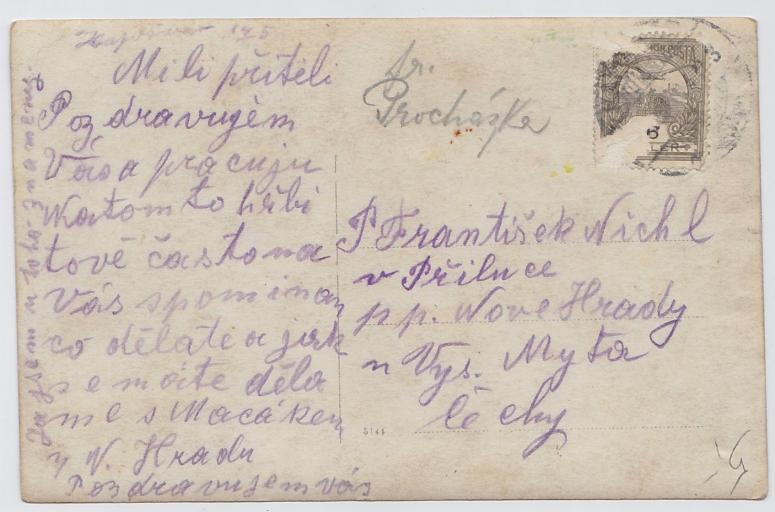 Milí příteli
Pozdravujem
Vás a pracuju
Na tomto hřbi
tově často na
Vás spominam
co děláte a jak
se máte děla
me s Macákem
z N. Hradu
Pozdravujem vás
Já jsem u toho znameny
fr.
Procháska
P František Nichl
v Příluce
p p. Nove Hrady
u Vys. Myta
Čechy
5141
6